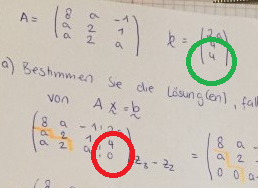 A = ( 8 a -1 ; a 2 1 ; a 2 a )   b = ( 2a ; 4 ; 4 )
a) Bestimmen Sie die Lösung(en), fall
von A x = b
( 8 a -1 | 2a ; a 2 1 | 4 ; a 2 a | 0 ) z3 - z2 = ( 8 a ; a 2 ; 0 0 a